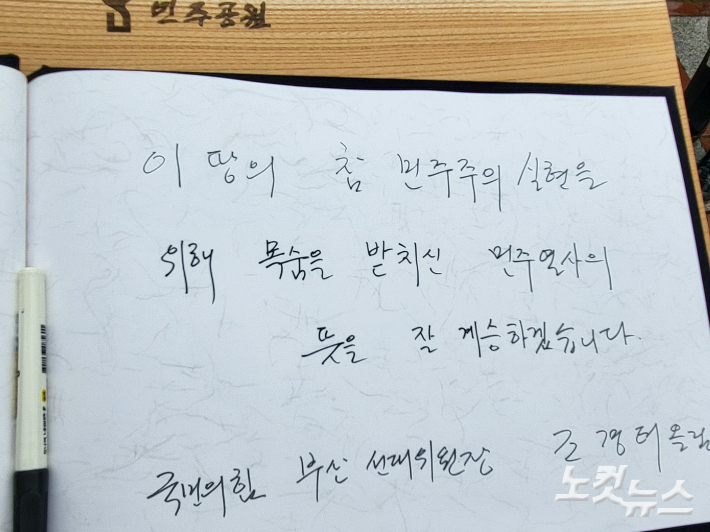 민주공원
이 땅의 참 민주주의 실현을
위해 목숨을 받치신 민주열사의
뜻을 잘 계승하겠습니다.
국민의힘 부산 선대위원장 조경태 올림
노컷뉴스